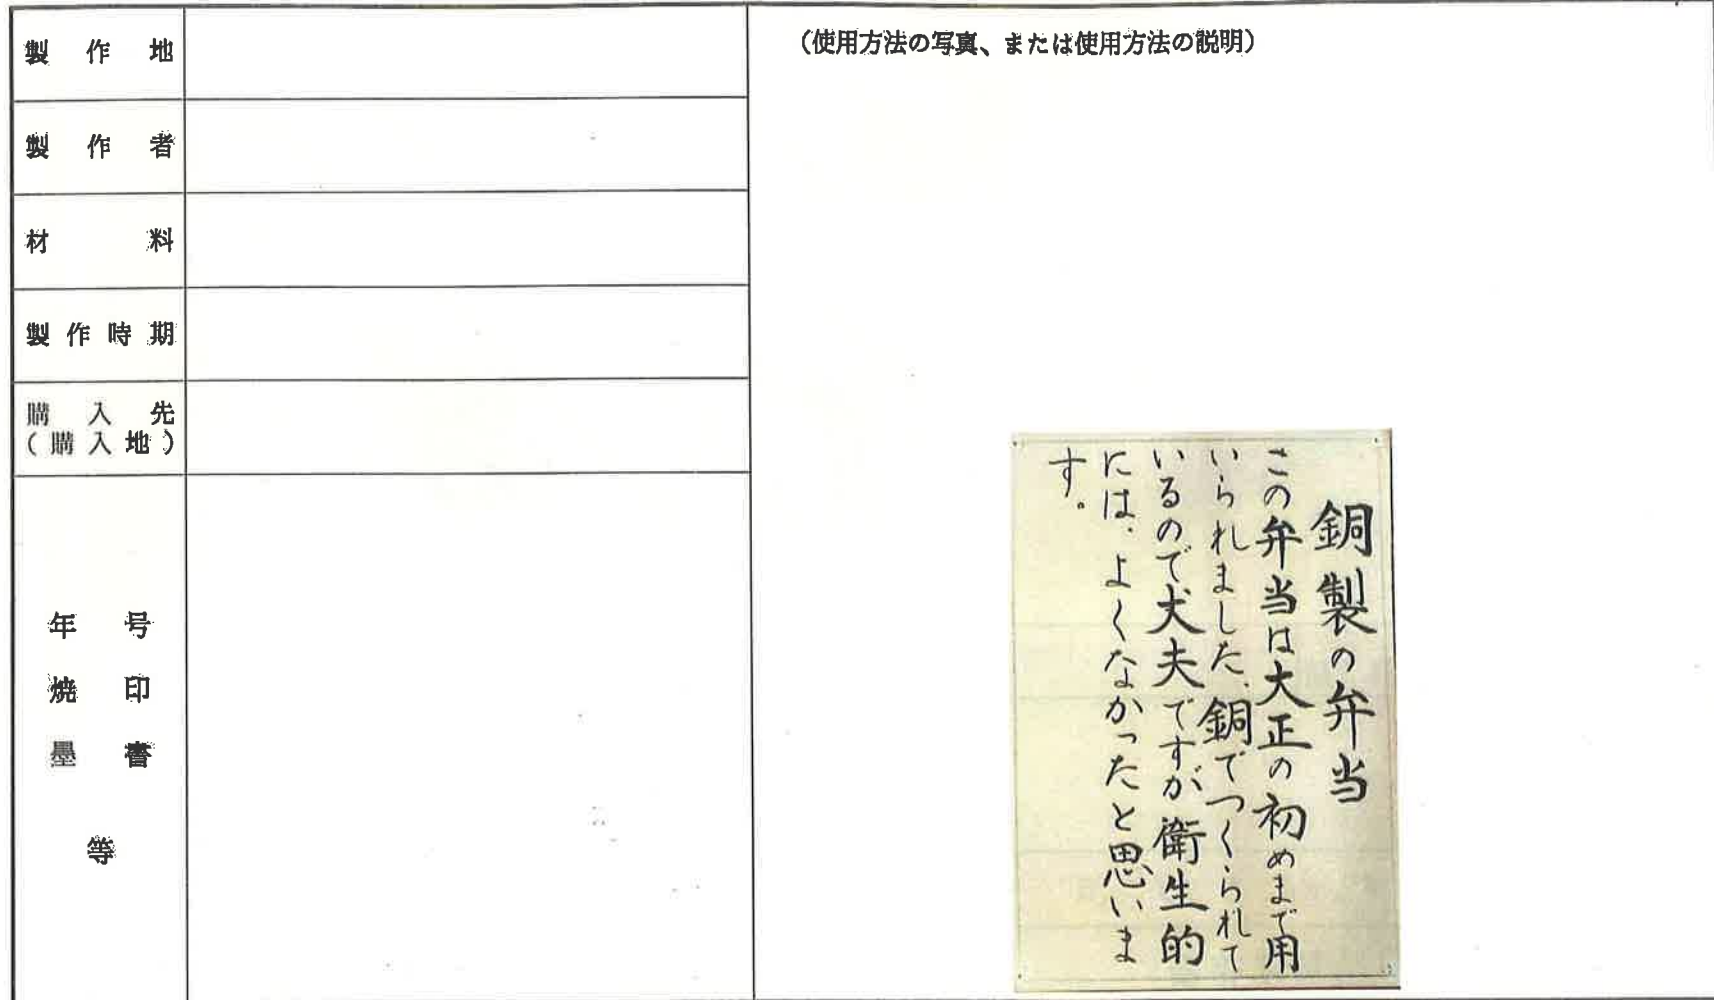 製作地
製作者
材料
製作時期
購入先
(購入地)
年号
焼印
墨書
等
(使用方法の写真、または使用方法の説明)
銅製の弁当
この弁当は大正の初めまで用
いられました、銅でつくられて
いるので犬夫ですが衛生的
には、よくなかったと思いま
す。